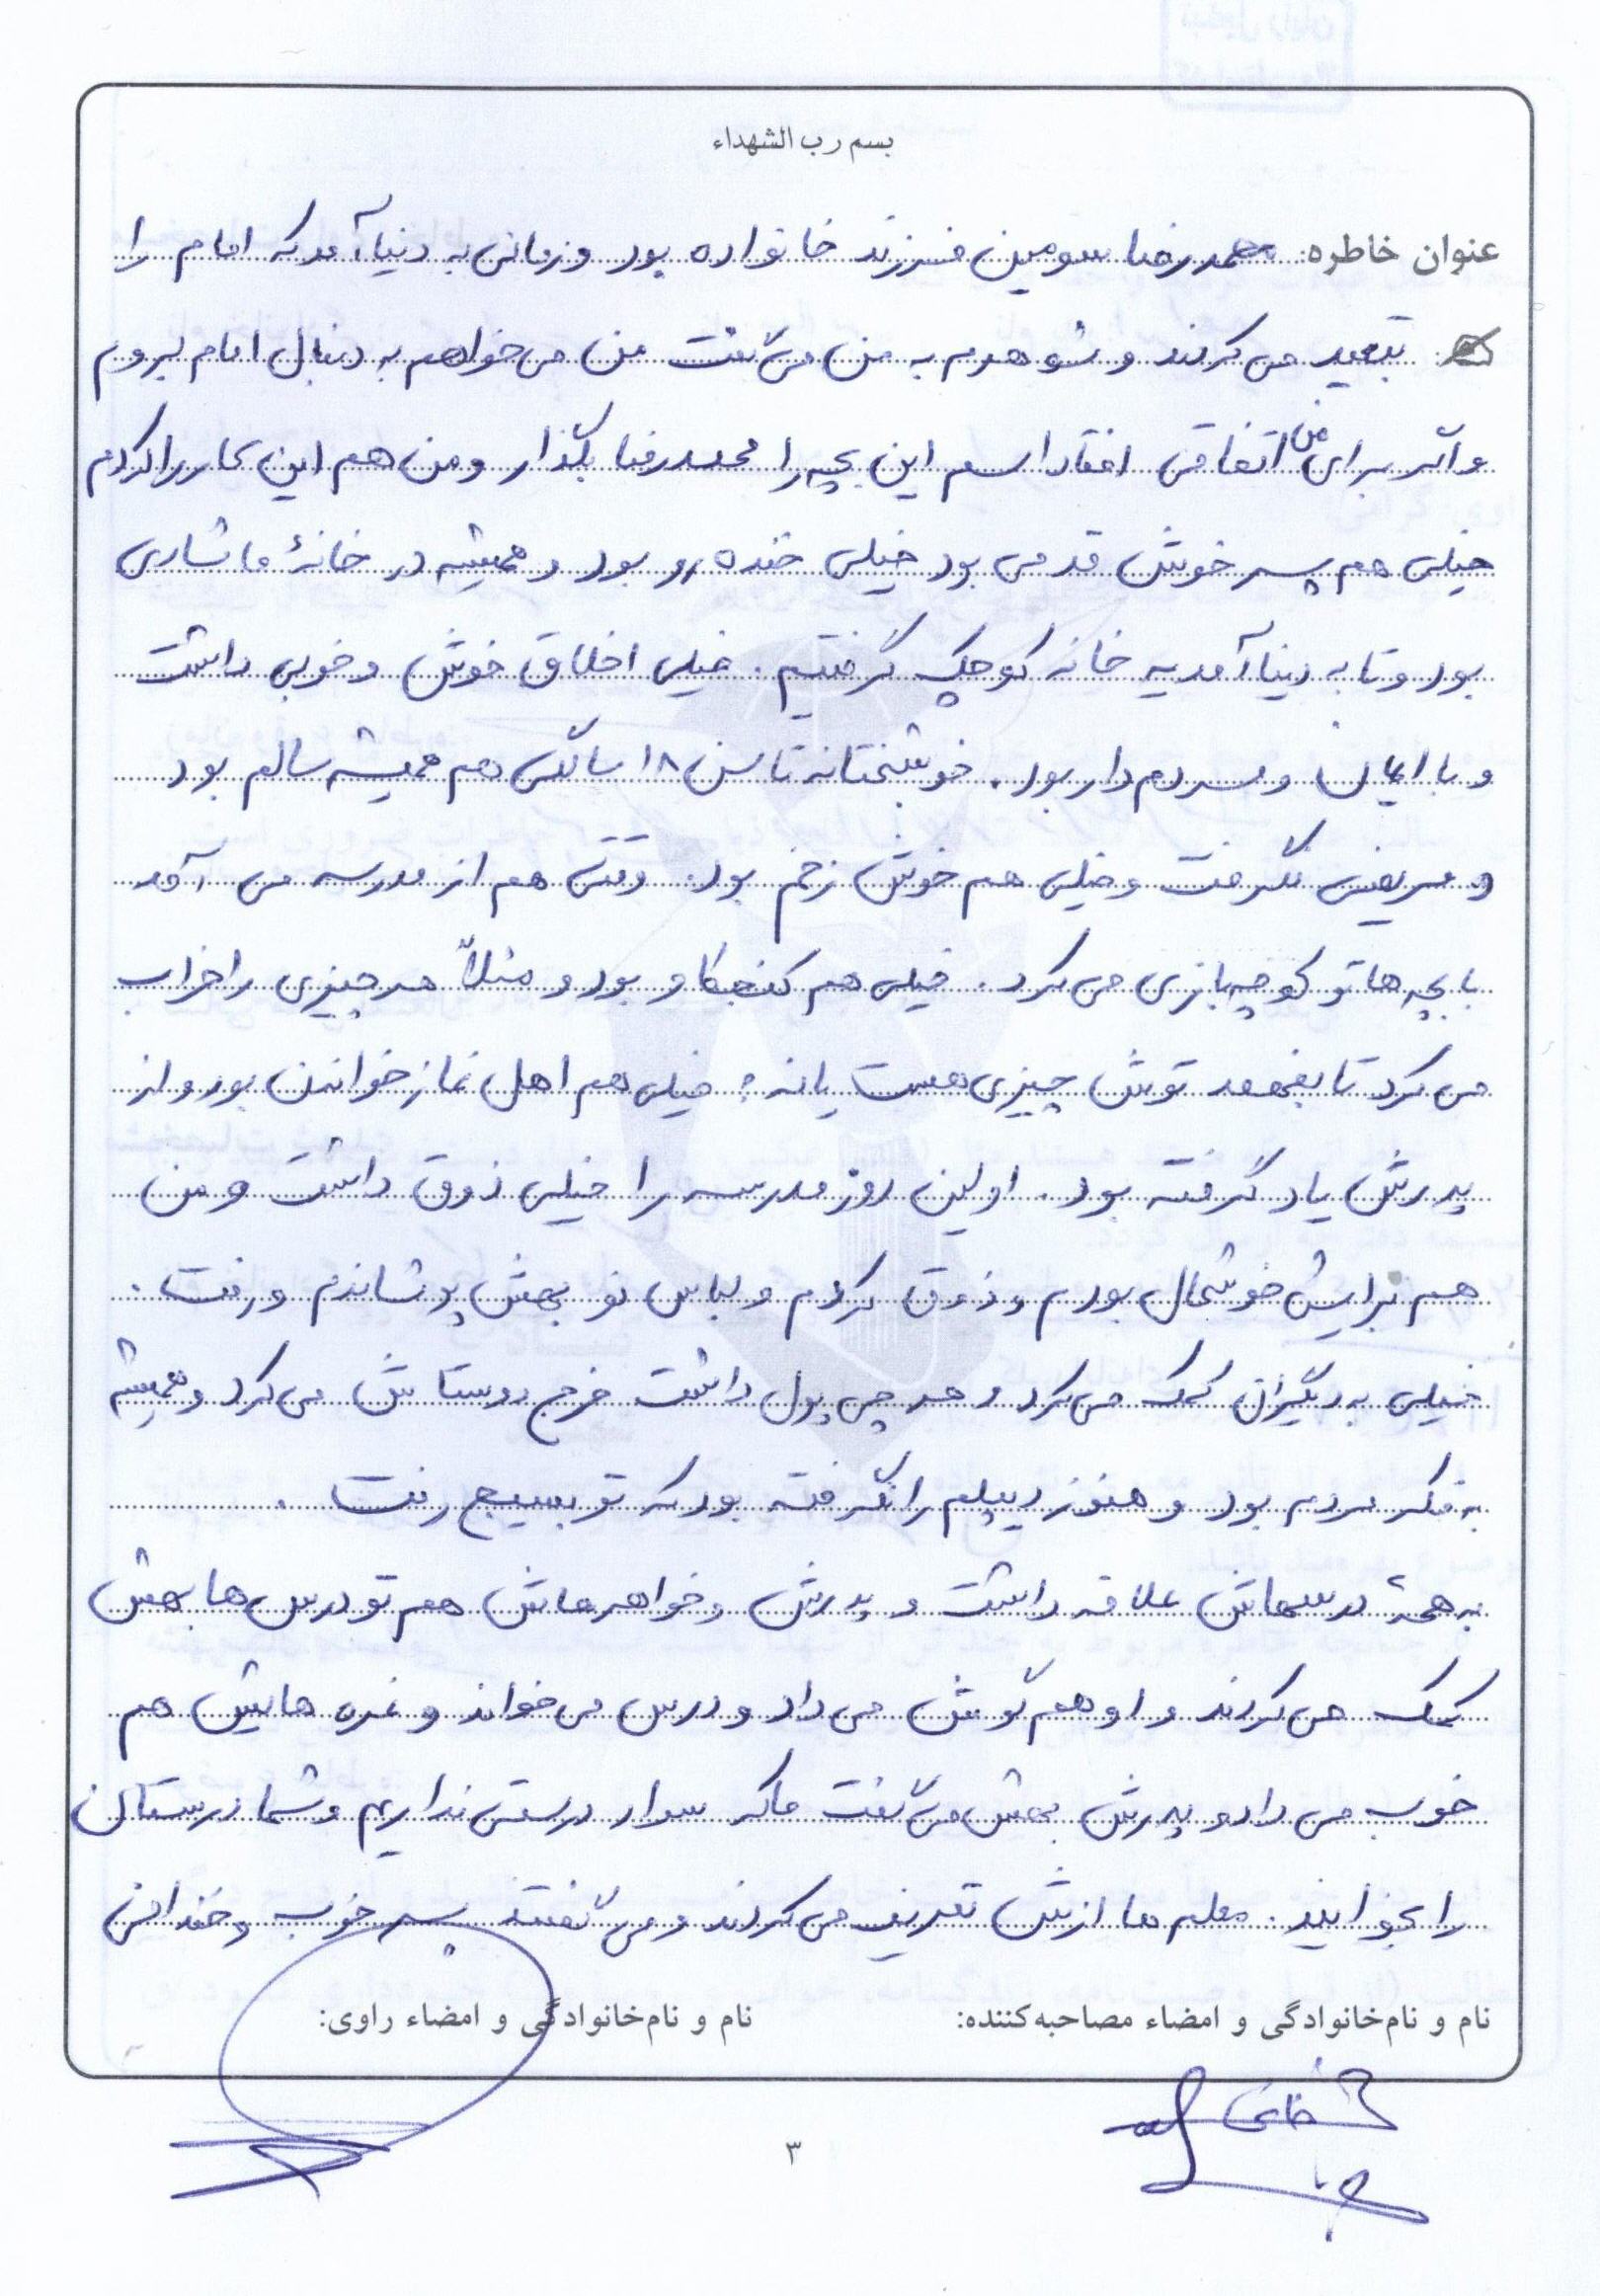 بسم رب الشهداء
عنوان خاطره: محمدرضا سومین فرزند خانواده بود و زمانی به دنیا آمد که امام را
تبعید می کردند و شوهرم به من می گفت من می خواهم به دنبال امام بروم
و اگر برای من اتفاقی افتاد اسم این بچه را محمدرضا بگذار و من هم این کار را کردم
خیلی هم پسر خوش قدمی بود خیلی خنده رو بود و همیشه در خانهٔ ما شادی
بود و تا به دنیا آمد یه خانه کوچک گرفتیم. خیلی اخلاق خوش و خوبی داشت
و با ایمان و مردم دار بود. خوشبختانه تا سن ۱۸ سالگی هم همیشه سالم بود
و مریضی نگرفت و خیلی هم خوش زخم بود. وقتی هم از مدرسه می آمد
با بچه ها تو کوچه بازی می کرد. خیلی هم کنجکاو بود و مثلاً هر چیزی را خراب
می کرد تا بفهمد توش چیزی هست یا نه؛ خیلی هم اهل نماز خواندن بود و از
پدرش یاد گرفته بود. اولین روز مدرسه را خیلی ذوق داشت و من
هم برایش خوشحال بودم و ذوق کردم و لباس نو بهش پوشاندم و رفت.
خیلی به دیگران کمک می کرد و هر چی پول داشت خرج دوستاش می کرد و همیشه
به فکر مردم بود و هنوز دیپلم را نگرفته بود که تو بسیج رفت.
به همهٔ درسهاش علاقه داشت و پدرش و خواهرهاش هم تو درس ها بهش
کمک می کردند و او هم گوش می داد و درس می خواند و نمره هایش هم
خوب می داد و پدرش بهش می گفت ما که سواد درستی نداریم و شما درستان
را بخوانید. معلم ها ازش تعریف می کردند و می گفتند پسر خوب و خندانی
نام و نام‌خانوادگی و امضاء مصاحبه‌کننده: نام و نام‌خانوادگی و امضاء راوی:
۳